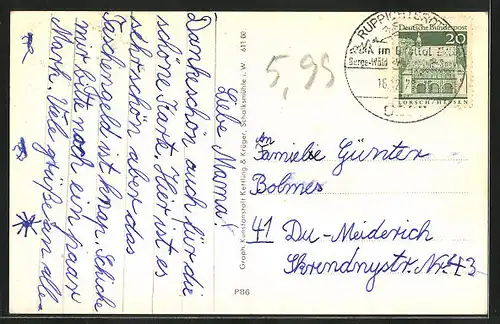 Liebe Mama!
Dankeschön auch für die
schöne Karte. Hier ist es
schön aber das
Taschengeld ist knap. Schicke
mir bitte noch ein paar
Mark. Viele grüße an alle
Graph. Kunstanstalt Kettling & Krüger, Schalksmühle i. W. 611 00
P86
5,95
RUPPICHTEROTH
im Bröltal
Berge-Wald
16.
Deutsche Bundespost
20
LORSCH/HESSEN
An
Familie Günter
Bolmes
41 Du-Meiderich
Nr. 43